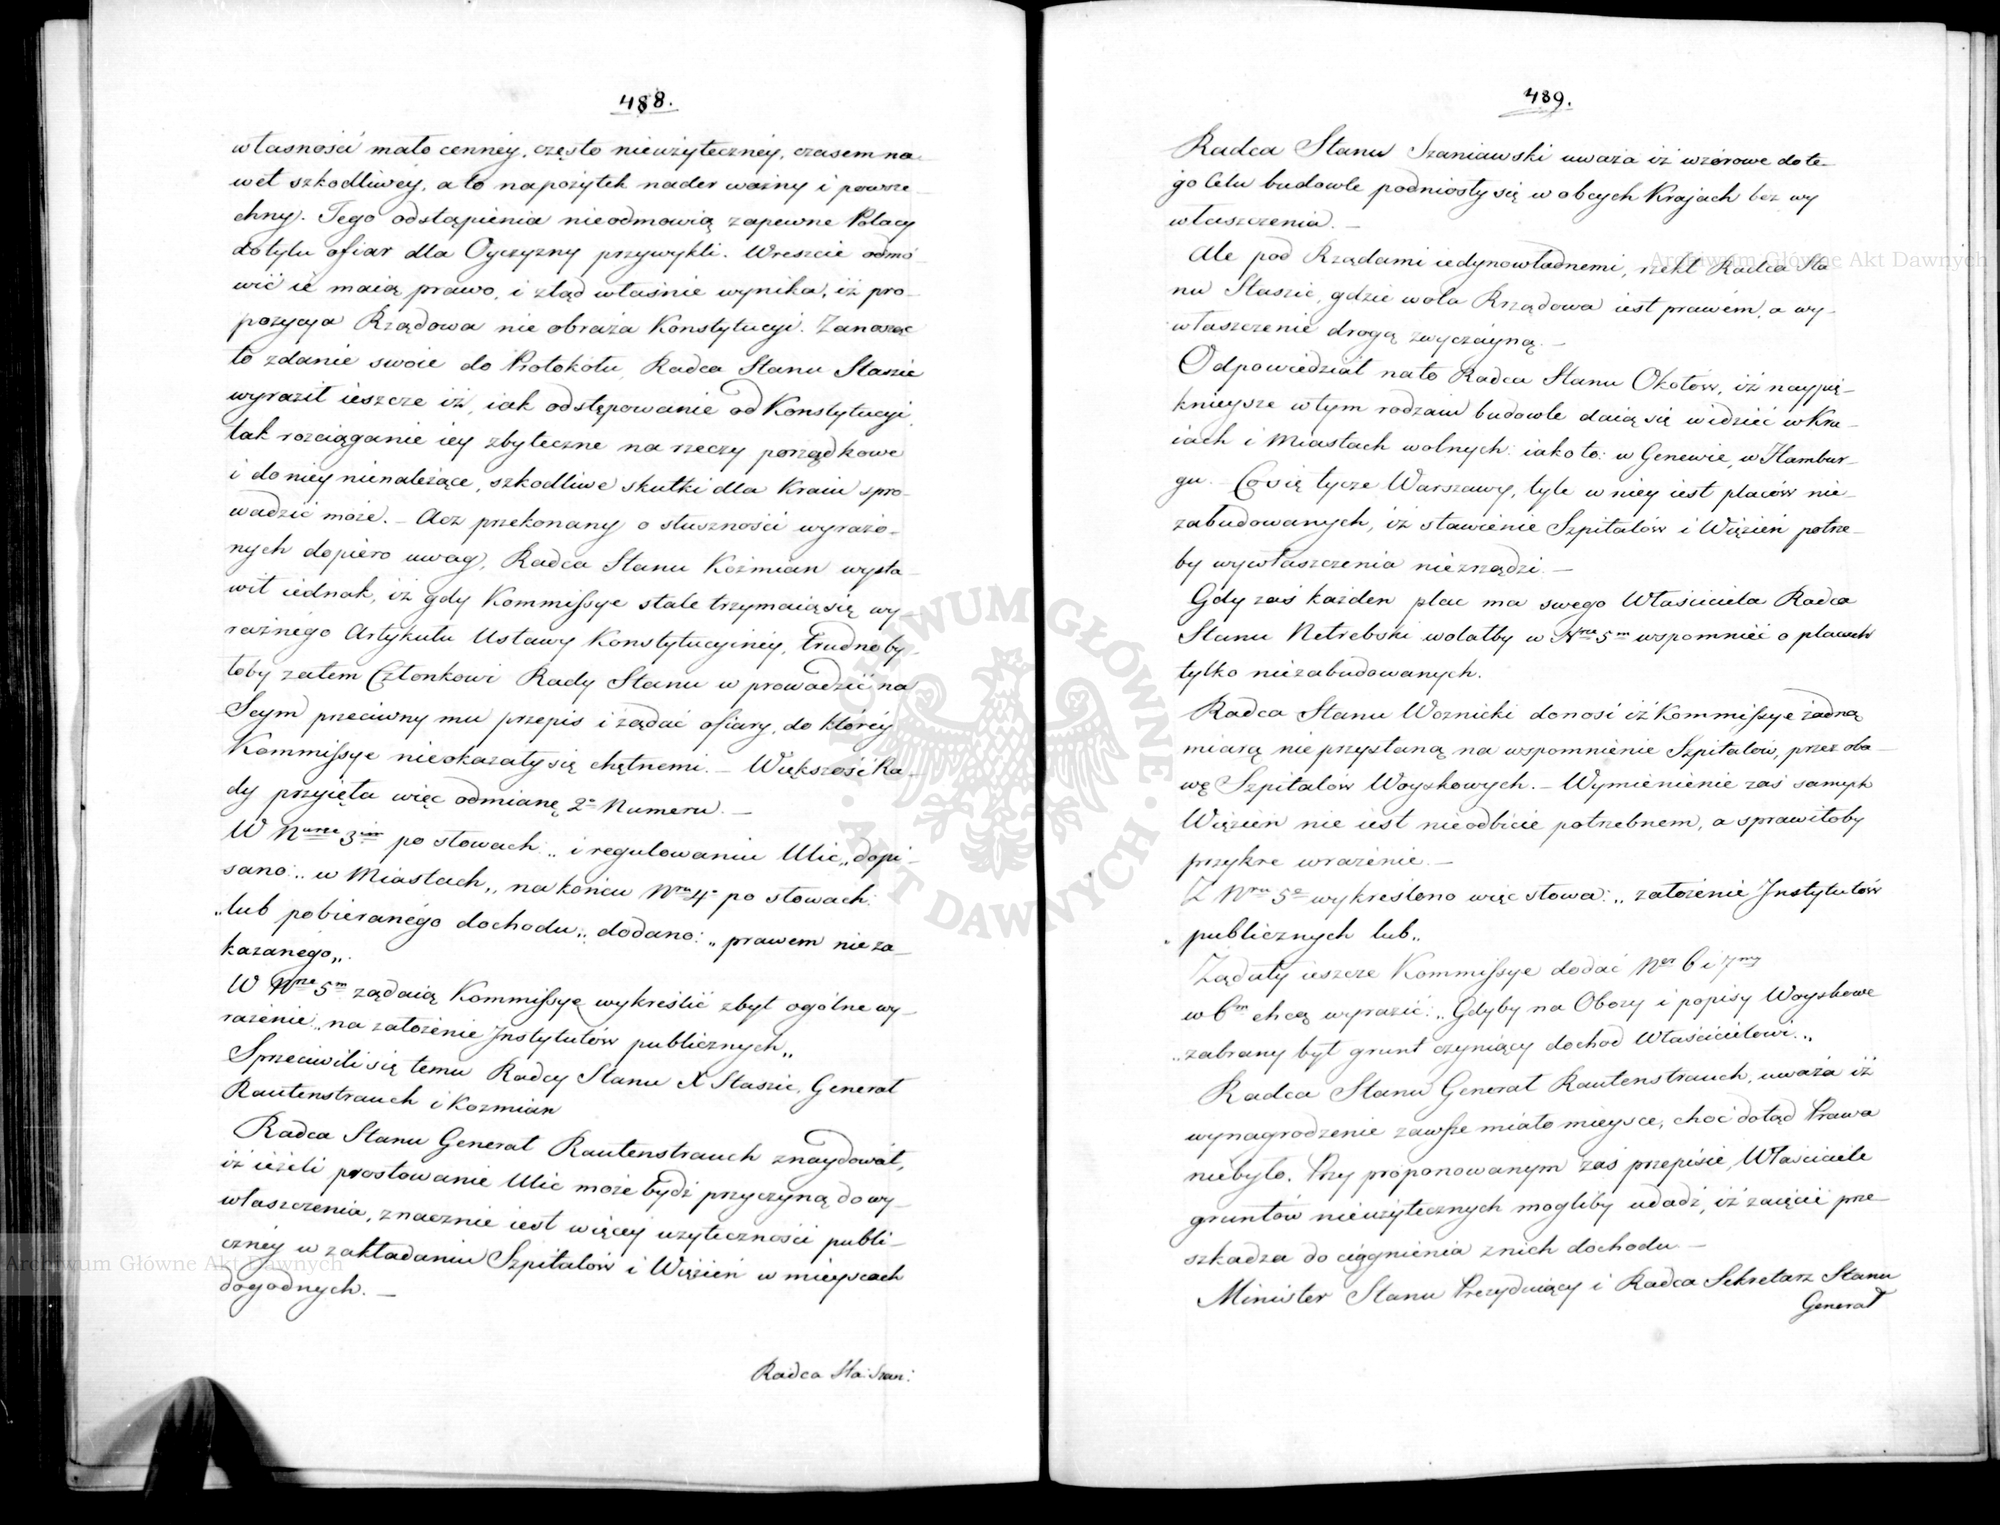 488.
własności mało cenney, często nieużyteczney, czasem na-
wet szkodliwey, a to na pożytek nader ważny i powsze-
chny. Tego odstąpienia nieodmowią zapewne Polacy
do tylu ofiar dla Oyczyzny przywykli. Wreszcie odmó-
wić ie maią prawo, i ztąd właśnie wynika, iż pro-
pozycya Rządowa nie obraża Konstytucyi. Zanosząc
to zdanie swoie do Protokołu, Radca Stanu Staszic
wyraził ieszcze iż, iak odstępowanie od Konstytucyi,
tak rozciąganie iey zbyteczne na rzeczy porządkowe
i do niey nienależące, szkodliwe skutki dla Kraiu spro-
wadzić może. – Acz przekonany o słuszności wyrażo-
nych dopiero uwag, Radca Stanu Koźmian wysta-
wił iednak, iż gdy Kommissye stale trzymaią się wy-
raźnego Artykułu Ustawy Konstytucyiney, trudno by-
łoby zatem Członkowi Rady Stanu wprowadzić na
Seym przeciwny mu przepis i żądać ofiary, do któréy
Kommissye nieokazały się chętnemi. – Większość Ra-
dy przyięła więc odmianę 2º Numeru. –
W Nurze 3im po słowach: „i regulowaniu Ulic„ dopi-
sano: „w Miastach„ na końcu Nru 4º po słowach:
„lub pobieranégo dochodu„ dodano: „prawem nieza-
kazanego„.
W Nrze 5m żądaią Kommissye wykreślić zbyt ogólne wy-
rażenie „na założenie Instytutów publicznych„
Sprzeciwili się temu Radcy Stanu X Staszic, Generał
Rautenstrauch i Kozmian
Radca Stanu Generał Rautenstrauch znaydował,
iż ieżeli prostowanie Ulic może bydź przyczyną do wy-
właszczenia, znacznie iest więcéy użyteczności publi-
cznéy w zakładaniu Szpitalów i Więzień w mieyscach
dogodnych. –
Radca Sta: Szan:
489.
Radca Stanu Szaniawski uważa iż wzorowe do te-
go Celu budowle podniosły się w obcych Krajach bez wy
właszczenia. –
Ale pod Rządami iedynowładnemi, rzekł Radca Sta-
nu Staszic, gdzie wola Rządowa iest prawem, a wy-
właszczenie drogą zwyczayną. –
Odpowiedział na to Radca Stanu Okołów, iż naypię-
knieysze w tym rodzaiu budowle daią się widzieć w Kra-
iach i Miastach wolnych: iako to: w Genewie, w Hambur-
gu. – Co się tycze Warszawy, tyle w niey iest placów nie-
zabudowanych, iż stawienie Szpitalów i Więzień potrze-
by wywłaszczenia niezrządzi. –
Gdy zaś każden plac ma swego Właściciela Radca
Stanu Netrebski wolałby w Nrze 5m wspomnieć o placach
tylko niezabudowanych.
Radca Stanu Woznicki donosi iż Kommissye żadną
miarą nie przystaną na wspomnienie Szpitalów, przez oba-
wę Szpitalów Woyskowych. – Wymienienie zaś samych
Więzień nie iest nieodbicie potrzebnem, a sprawiłoby
przykre wrażenie. –
Z Nru 5º wykreślono więc słowa: „założenie Instytutów
„publicznych lub„
Żądały ieszcze Kommissye dodać Nr 6 i 7my
w 6m chcą wyrazić: „Gdyby na Obozy i popisy Woyskowe
„zabrany był grunt czyniący dochod Właścicielowi.„
Radca Stanu Generał Rautenstrauch, uważa iż
wynagrodzenie zawsze miało mieysce, choć dotąd Prawa
niebyło. Przy proponowanym zaś przepisie, Właściciele
gruntów nieużytecznych mogliby udadź, iż zaięcie prze-
szkadza do ciągnienia z nich dochodu –
Minister Stanu Prezyduiący i Radca Sekretarz Stanu
Generał
Archiwum Główne Akt Dawnych
Archiwum Główne Akt Dawnych
ARCHIWUM GŁÓWNE · AKT DAWNYCH ·